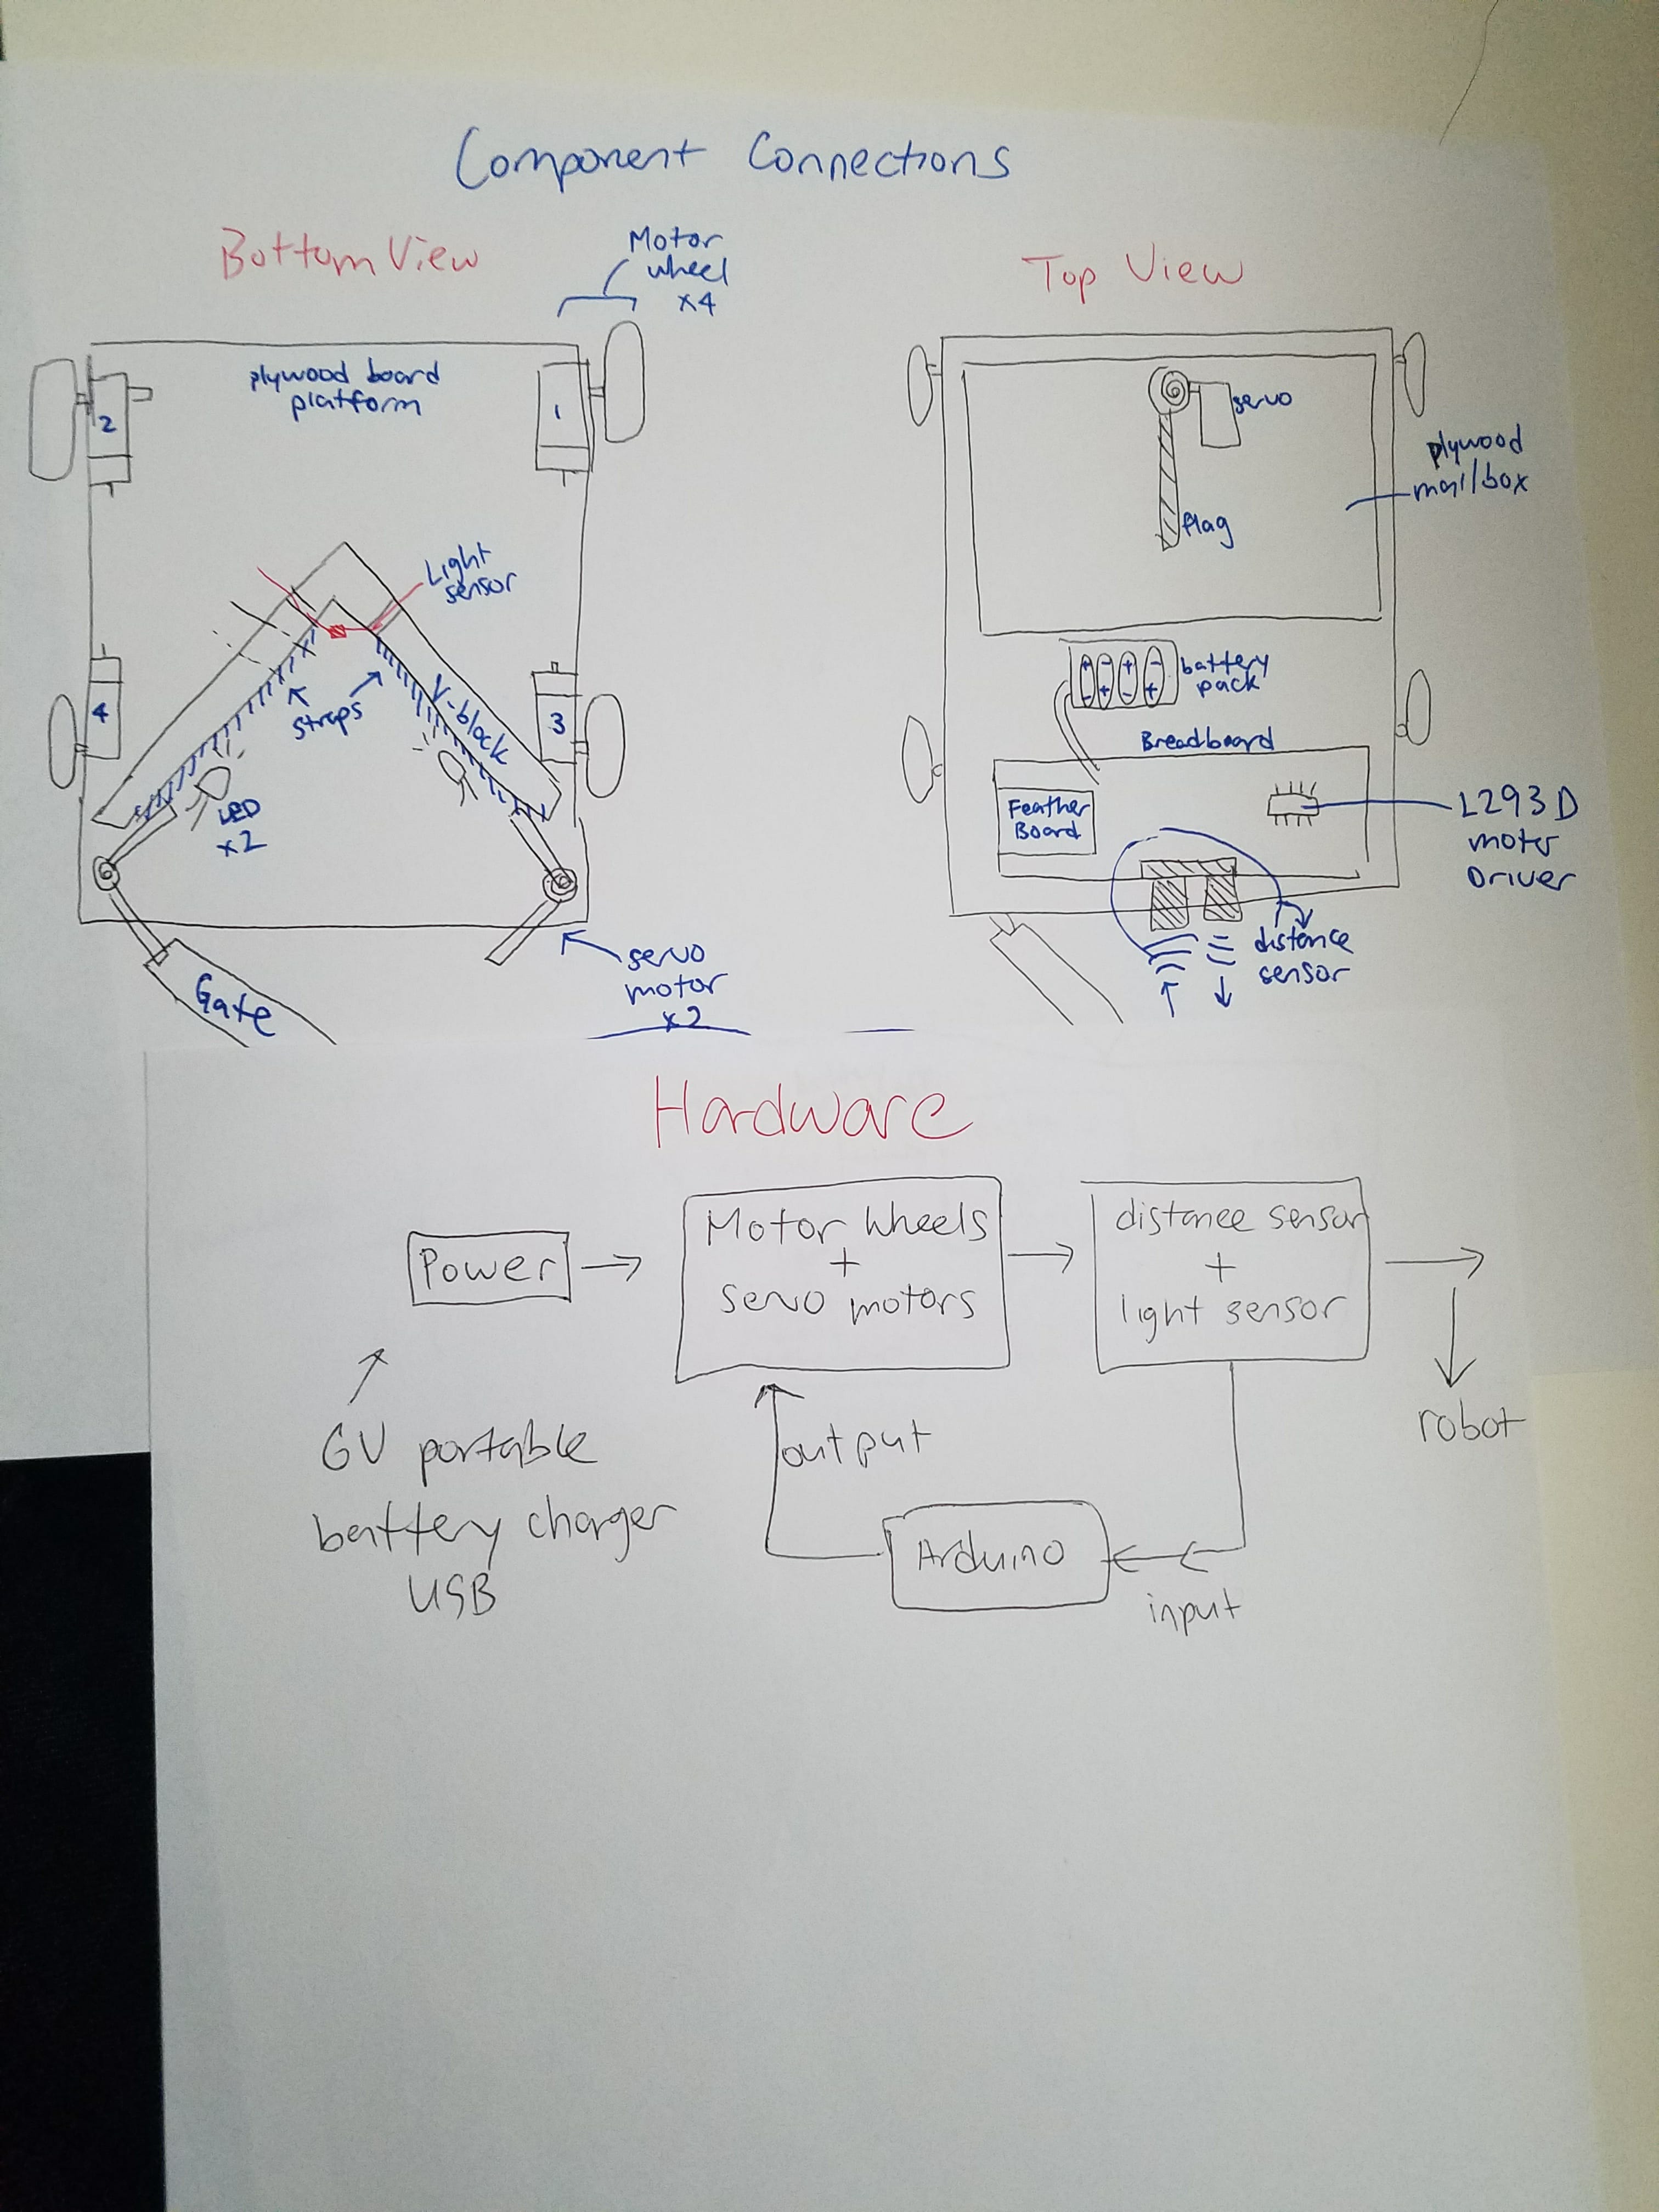 Component Connections
Bottom View
Motor
wheel
x4
plywood board
platform
2
1
Light
sensor
straps
V-block
4
3
LED
x2
Gate
servo
motor
x2
Top View
servo
flag
plywood
mailbox
+ - + -
- + - +
battery
pack
Breadboard
Feather
Board
L293D
motor
Driver
distance
sensor
Hardware
Power
Motor Wheels
+
servo motors
distance sensor
+
light sensor
6V portable
battery charger
USB
output
Arduino
input
robot